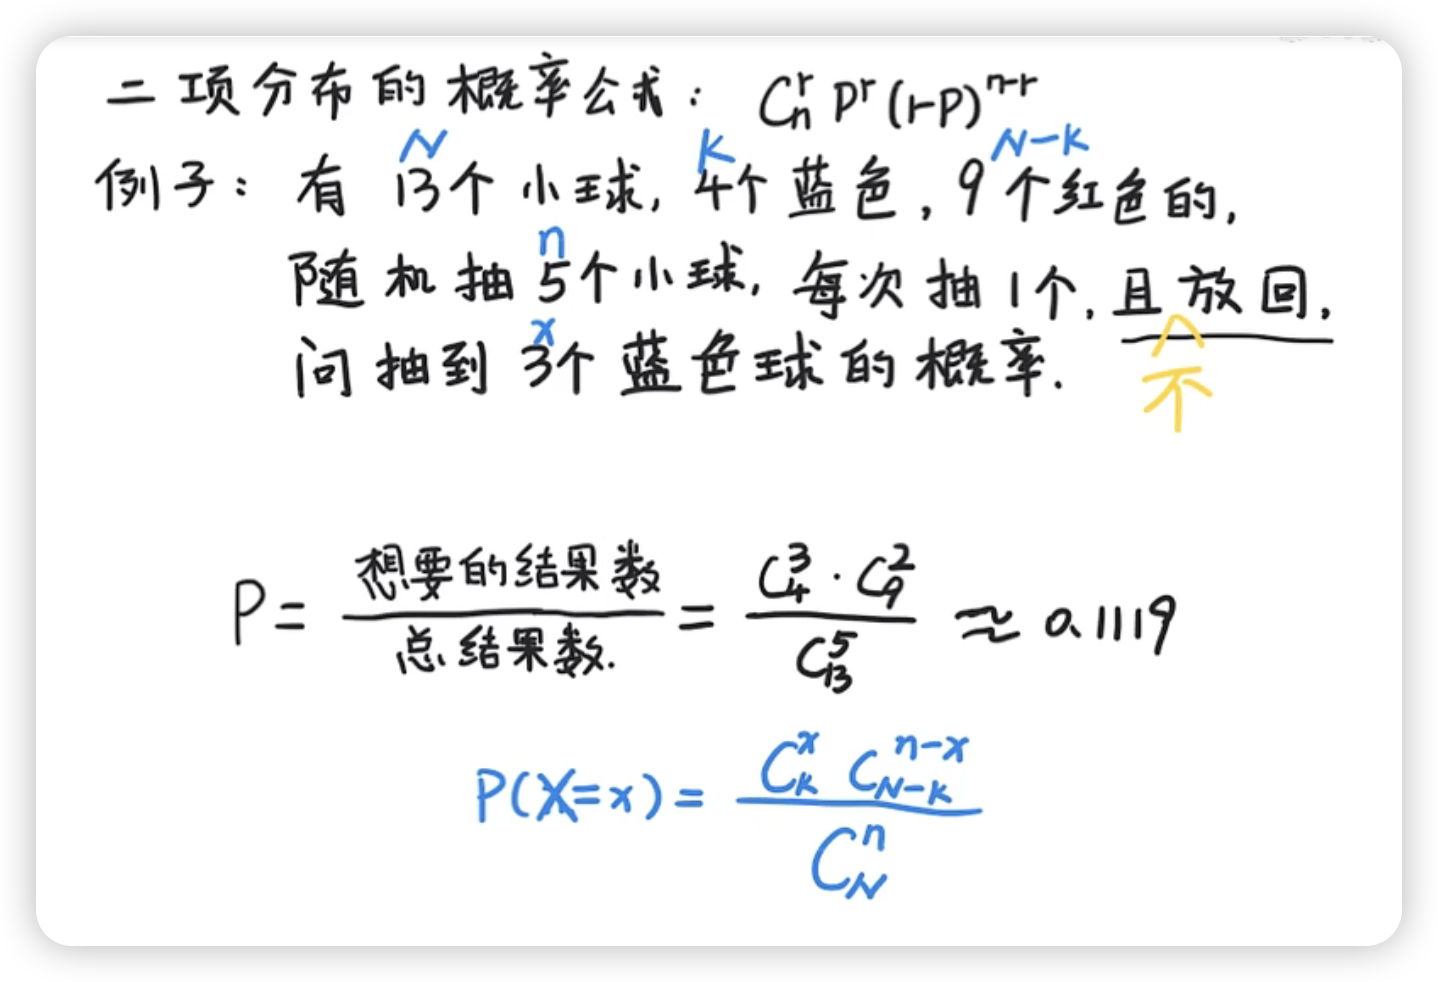 二项分布的概率公式： C_n^r P^r (1-P)^{n-r}
N K N-K
例子：有 13个小球, 4个蓝色, 9个红色的,
n
随机抽5个小球, 每次抽1个, 且放回,
x
不
问抽到 3个蓝色球的概率.
P = 想要的结果数 / 总结果数. = C_4^3 · C_9^2 / C_13^5 ≈ 0.1119
P(X=x) = C_K^x C_{N-K}^{n-x} / C_N^n